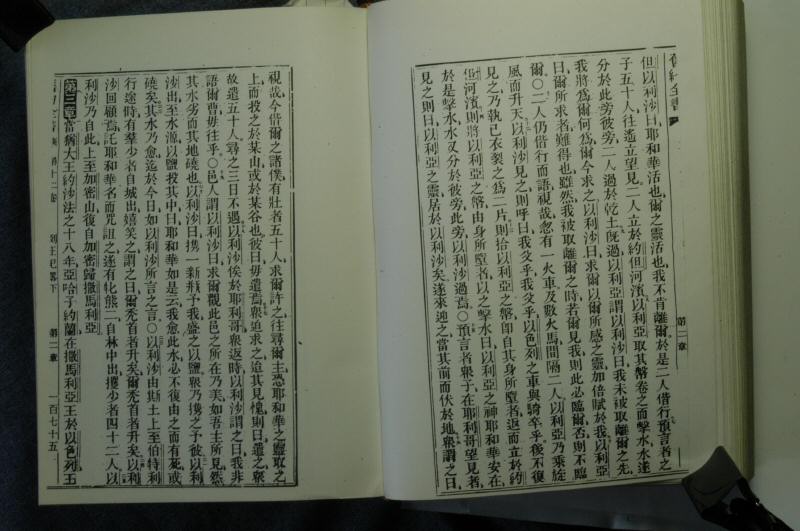 舊約全書
第二章
但以利沙曰耶和華活也爾之靈活也我不肯離爾於是二人偕行預言者之
子五十人往遙立望見二人立於約但河濱以利亞取其幣卷之而擊水水遂
分於此旁彼旁二人過於乾土旣過以利亞謂以利沙曰我未被取離爾之先
我將爲爾何爲爾今求之以利沙曰求爾以爾所感之靈加倍賦於我以利亞
曰爾所求者難得也雖然我被取離爾之時若爾見我則此必臨爾否則不臨
爾〇二人仍偕行而語視哉忽有一火車及數火馬間隔二人以利亞乃乘旋
風而升天以利沙見之則呼曰我父乎我父乎以色列之車與騎卒乎後不復
見之乃執己衣裂之爲二片則拾以利亞之幣卽自其身所墮者返而立於約
但河濱則將以利亞之幣由身所墮者以之擊水曰以利亞之神耶和華安在
於是擊水水又分於彼旁此旁以利沙過焉〇預言者衆子在耶利哥望見者
見之則曰以利亞之靈居於以利沙矣遂來迎之當其前而伏於地衆謂之曰
視哉今偕爾之諸僕有壯者五十人求爾許之往尋爾主恐耶和華之靈取之
上而投之於某山或於某谷也彼曰毋遣焉衆迫求之迨其見愧則曰遣之衆
故遣五十人尋之三日不遇以利沙俟於耶利哥衆返時以利沙謂之曰我非
語爾曹毋往乎〇邑人謂以利沙曰求爾觀此邑之所在乃美如吾主所見然
其水劣而其地磽也以利沙曰携一新瓶予我盛之以鹽衆乃携之予彼以利
沙出至水源以鹽投其中曰耶和華如是云我愈此水必不復由之而有死或
磽矣其水乃愈迄於今日如以利沙所言之言〇以利沙由斯土上至伯特利
行途時有羣少者自城出嬉笑之謂之曰爾禿首者升矣爾禿首者升矣以利
沙回顧焉託耶和華名而咒詛之遂有牝熊二自林中出攞少者四十二人以
利沙乃自此上至加密山復自加密歸撒馬利亞
第三章當猶大王約沙法之十八年亞哈子約蘭在撒馬利亞王於以色列王
列王紀畧下 第二章 一百七十五